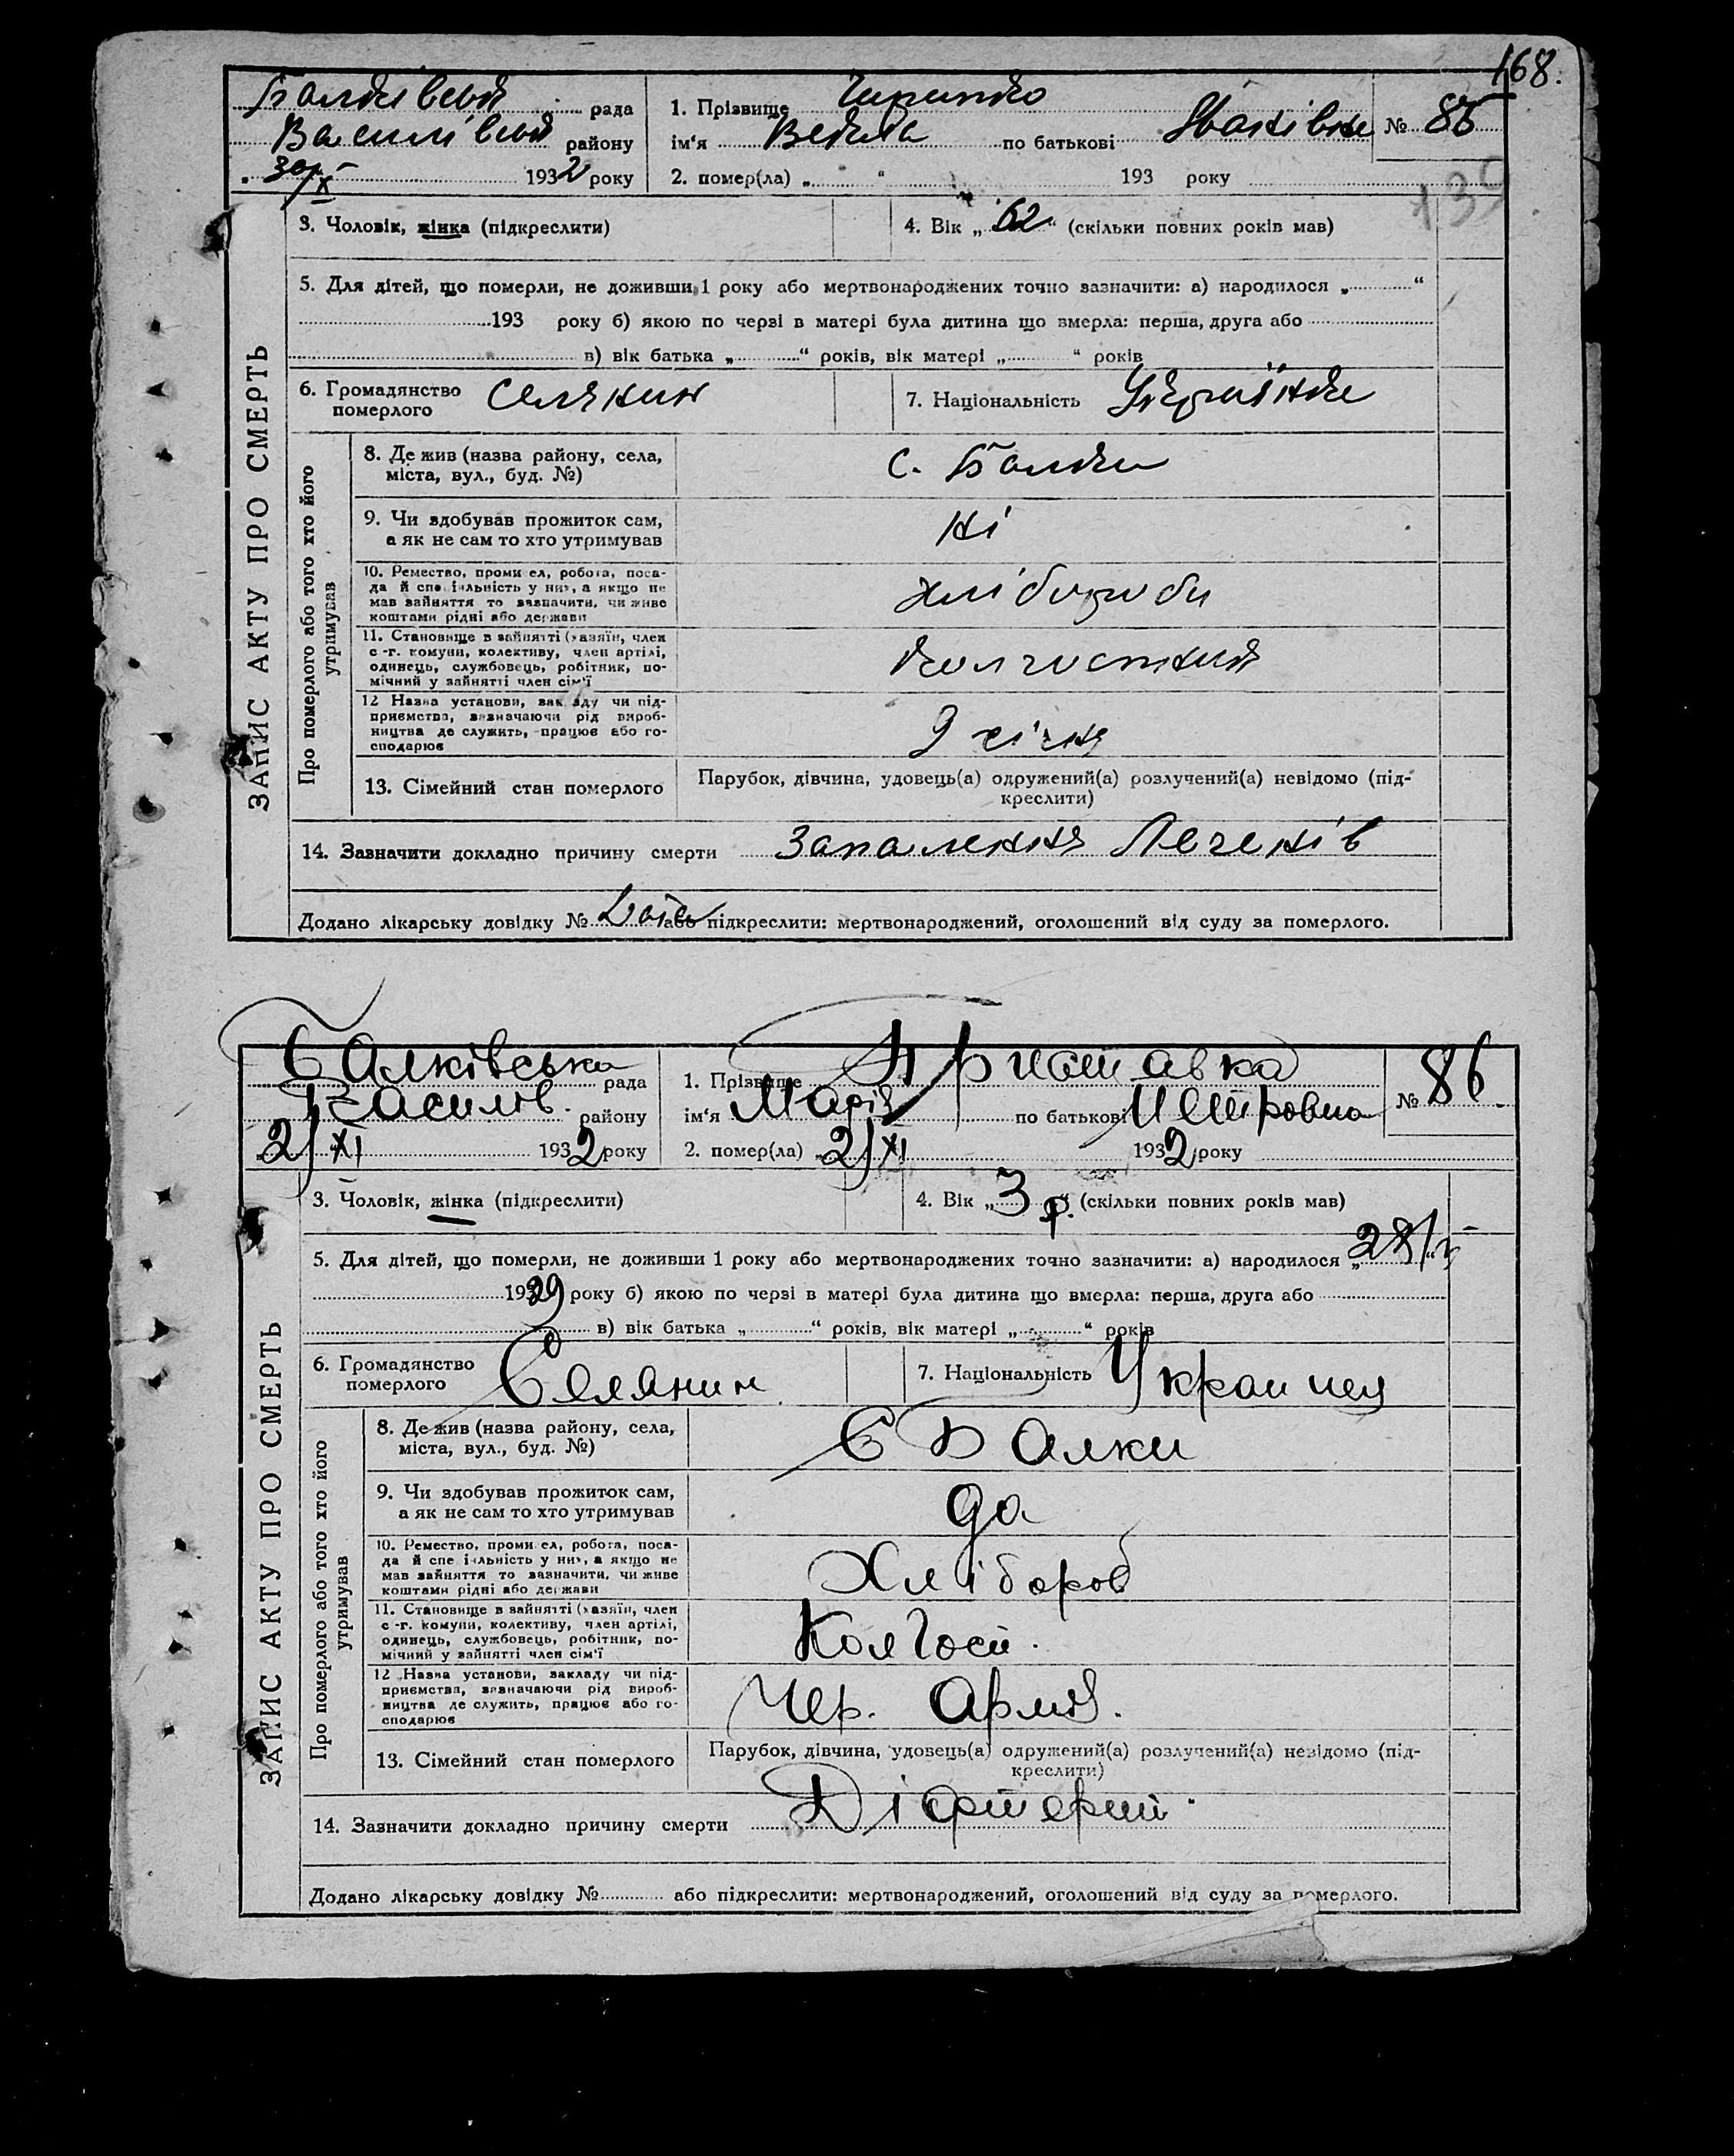 168.
Балківська рада
Василівськ району
30/X 1932 року
1. Прізвище
ім'я по батькові Іванівна № 85
2. помер(ла) „ “ 193 року
139
ЗАПИС АКТУ ПРО СМЕРТЬ
3. Чоловік, жінка (підкреслити)
4. Вік „62“ (скільки повних років мав)
5. Для дітей, що померли, не доживши 1 року або мертвонароджених точно зазначити: а) народилося „ “
193 року б) якою по черзі в матері була дитина що вмерла: перша, друга або
в) вік батька „ “ років, вік матері „ “ років
6. Громадянство померлого селянин
7. Національність Українка
Про померлого або того хто його утримував
8. Де жив (назва району, села,
міста, вул., буд. №)
с. Балки
9. Чи здобував прожиток сам,
а як не сам то хто утримував
ні
10. Ремество, промисел, робота, поса-
да й спеціальність у них, а якщо не
мав зайняття то зазначити, чи живе
коштами рідні або держави
хлібороби
11. Становище в зайнятті (хазяїн, член
с.-г. комуни, колективу, член артілі,
одинець, службовець, робітник, по-
мічний у зайнятті член сім'ї
12 Назва установи, закладу чи під-
приємства, зазначаючи рід вироб-
ництва де служить, працює або го-
сподарює
9 січня
13. Сімейний стан померлого
Парубок, дівчина, удовець(а) одружений(а) розлучений(а) невідомо (під-
креслити)
14. Зазначити докладно причину смерти Запалення Легенів
Додано лікарську довідку № або підкреслити: мертвонароджений, оголошений від суду за померлого.
Балківська рада
Василів. району
2/XI 1932 року
1. Прізвище Приставка
ім'я Марія по батькові Петровна № 86.
2. помер(ла) „2/XI 1932 року
ЗАПИС АКТУ ПРО СМЕРТЬ
3. Чоловік, жінка (підкреслити)
4. Вік „3 р.“ (скільки повних років мав)
5. Для дітей, що померли, не доживши 1 року або мертвонароджених точно зазначити: а) народилося „28/
1929 року б) якою по черзі в матері була дитина що вмерла: перша, друга або
в) вік батька „ “ років, вік матері „ “ років
6. Громадянство померлого Селянин
7. Національність
Про померлого або того хто його утримував
8. Де жив (назва району, села,
міста, вул., буд. №)
С Балки
9. Чи здобував прожиток сам,
а як не сам то хто утримував
да
10. Ремество, промисел, робота, поса-
да й спеціальність у них, а якщо не
мав зайняття то зазначити, чи живе
коштами рідні або держави
Хлібороб
11. Становище в зайнятті (хазяїн, член
с.-г. комуни, колективу, член артілі,
одинець, службовець, робітник, по-
мічний у зайнятті член сім'ї
Колгосп.
12 Назва установи, закладу чи під-
приємства, зазначаючи рід вироб-
ництва де служить, працює або го-
сподарює
Чер. Армія.
13. Сімейний стан померлого
Парубок, дівчина, удовець(а) одружений(а) розлучений(а) невідомо (під-
креслити)
14. Зазначити докладно причину смерти Діфтерит.
Додано лікарську довідку № або підкреслити: мертвонароджений, оголошений від суду за померлого.